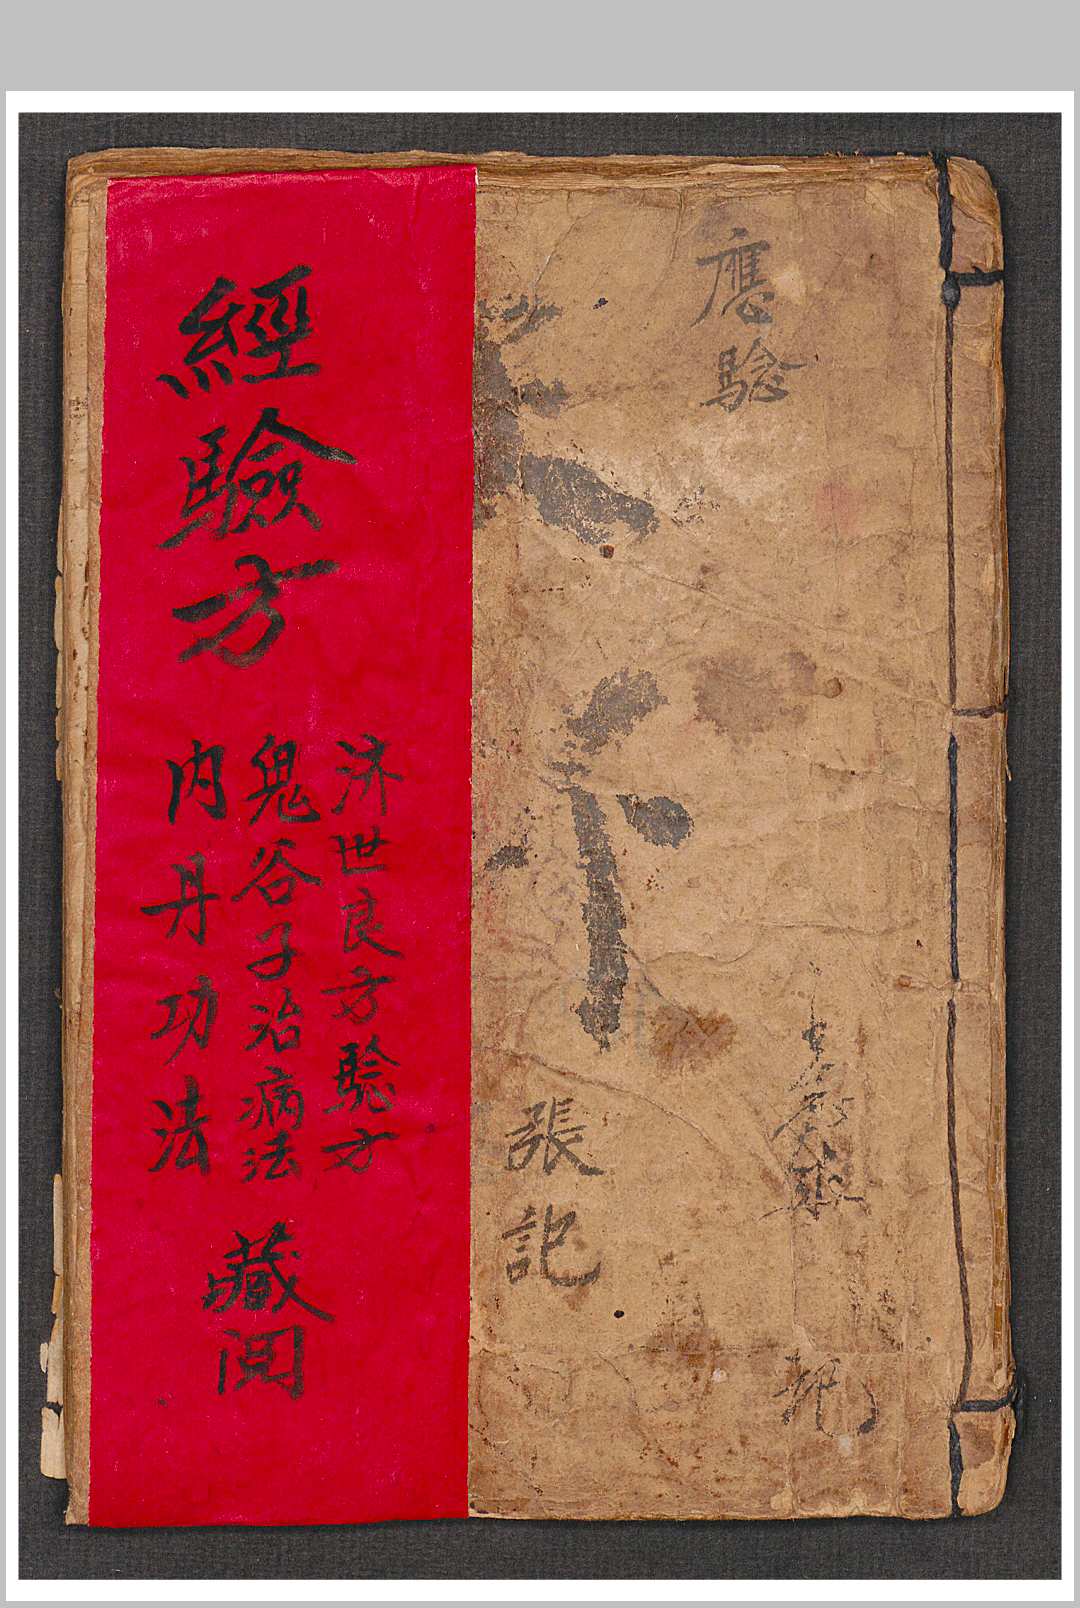 應驗
張記
經驗方
济世良方驗方
鬼谷子治病法
内丹功法
藏阅